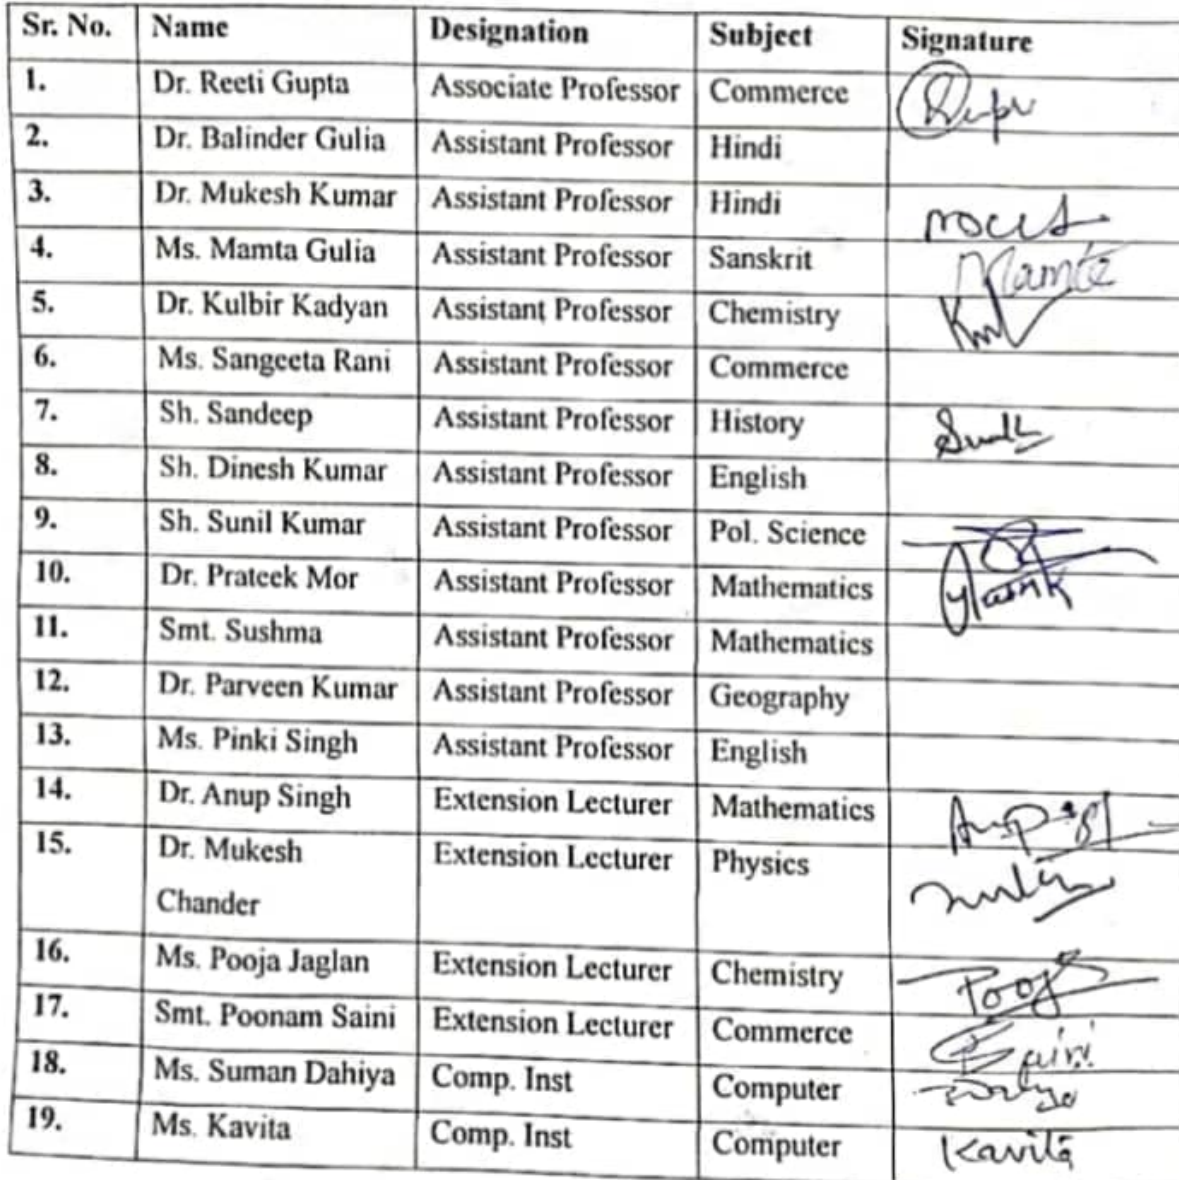 Sr. No. Name Designation Subject Signature
1. Dr. Reeti Gupta Associate Professor Commerce
2. Dr. Balinder Gulia Assistant Professor Hindi
3. Dr. Mukesh Kumar Assistant Professor Hindi
4. Ms. Mamta Gulia Assistant Professor Sanskrit Mamta
5. Dr. Kulbir Kadyan Assistant Professor Chemistry
6. Ms. Sangeeta Rani Assistant Professor Commerce
7. Sh. Sandeep Assistant Professor History
8. Sh. Dinesh Kumar Assistant Professor English
9. Sh. Sunil Kumar Assistant Professor Pol. Science
10. Dr. Prateek Mor Assistant Professor Mathematics
11. Smt. Sushma Assistant Professor Mathematics
12. Dr. Parveen Kumar Assistant Professor Geography
13. Ms. Pinki Singh Assistant Professor English
14. Dr. Anup Singh Extension Lecturer Mathematics
15. Dr. Mukesh Extension Lecturer Physics
Chander
16. Ms. Pooja Jaglan Extension Lecturer Chemistry Pooja
17. Smt. Poonam Saini Extension Lecturer Commerce Saini
18. Ms. Suman Dahiya Comp. Inst Computer
19. Ms. Kavita Comp. Inst Computer Kavita